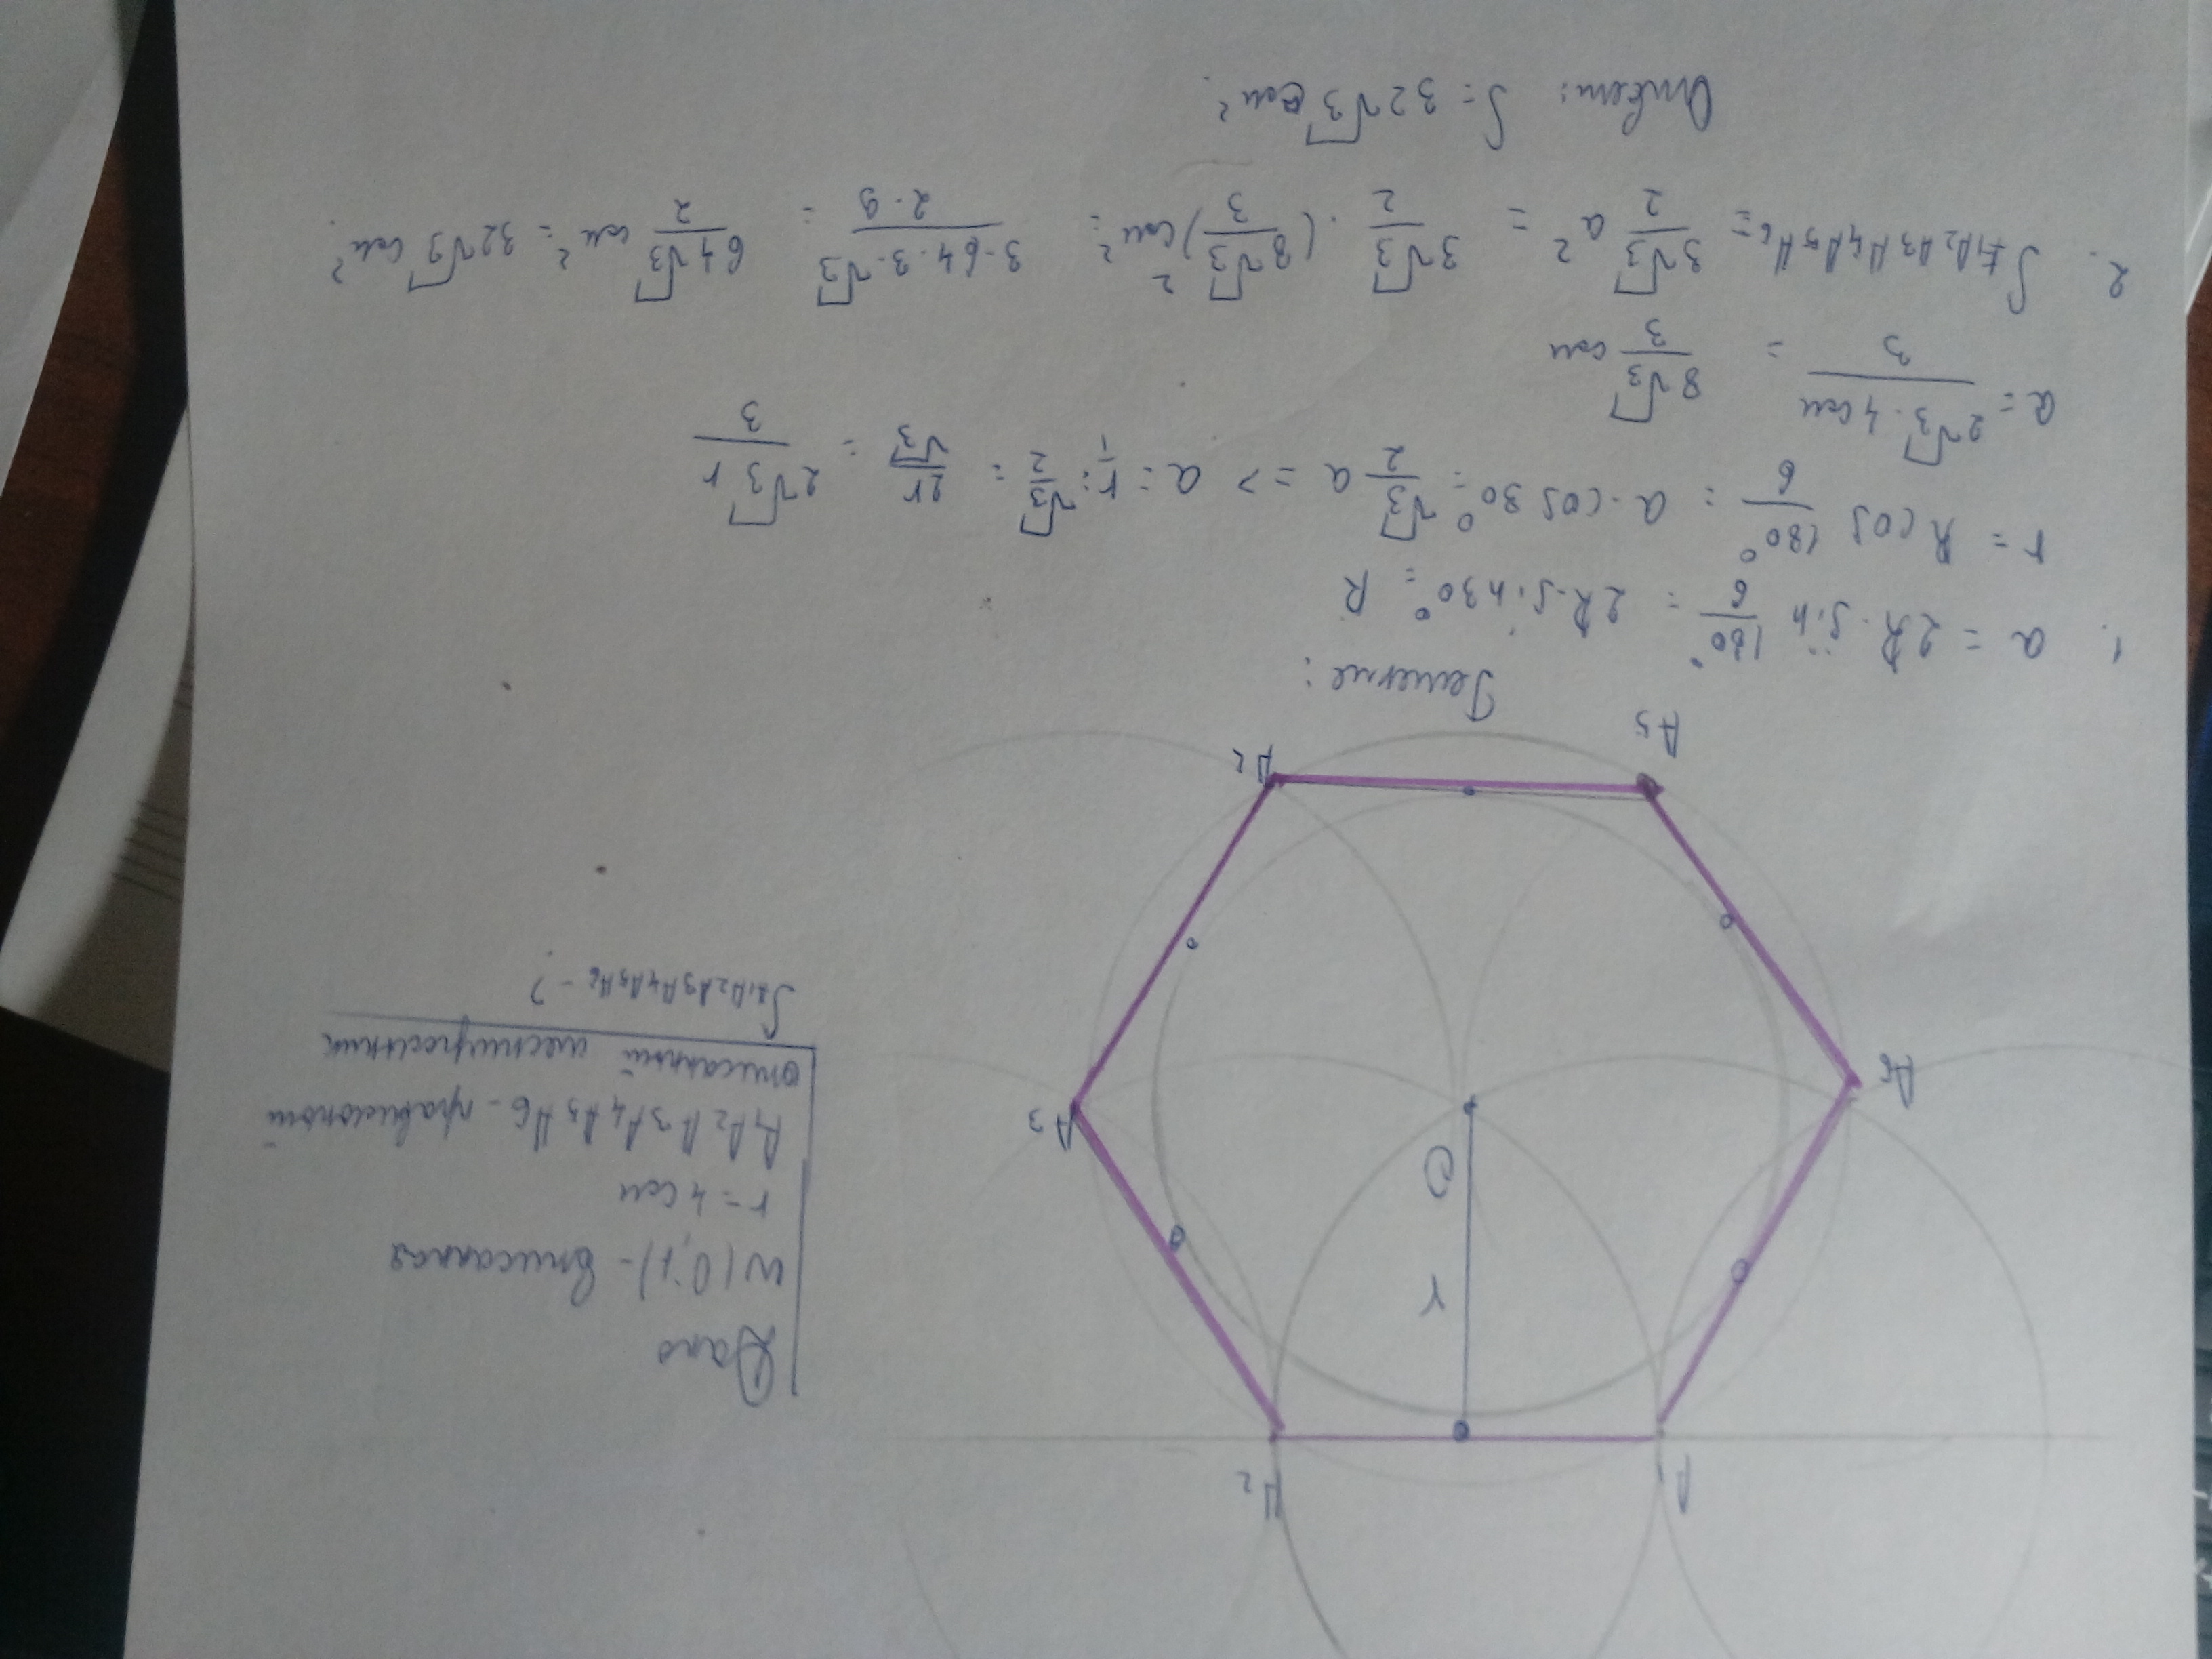 A1 A2
r
O
A6 A3
A5 A2
Дано
W(O;r) - вписанная
r = 4 см
A1A2A3A4A5A6 - правильный
описанный шестиугольник
SA1A2A3A4A5A6 - ?
Решение:
1. a = 2R · sin 180°/6 = 2R · sin 30° = R
r = R cos 180°/6 = a · cos 30° = √3/2 a => a = r/1 : √3/2 = 2r/√3 = 2√3 r/3
a = 2√3 · 4 см/3 = 8√3/3 см
2. SA1A2A3A4A5A6 = 3√3/2 a² = 3√3/2 · (8√3/3)² см² = 3·64·3·√3/2·9 = 64√3/2 см² = 32√3 см².
Ответ: S = 32√3 см².